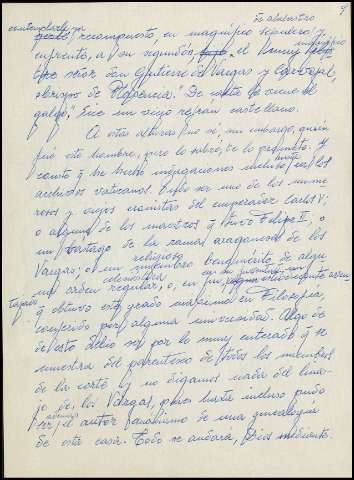 9
de alabastro
contemplarle ya
recompuesto, en magnífico sepulcro y
enfrente, a su segundón, el Ilmo. y magnífico
señor don Gutierre de Vargas y Carvajal,
obispo de Plasencia. "De casta le viene al
galgo", dice un viejo refrán castellano.
A estas alturas no sé, sin embargo, quién
fue este hombre, pero lo sabré, te lo prometo. Y
cuento q. he hecho indagaciones incluso hasta en los
archivos vaticanos. Pudo ser uno de los nume-
rosos y viejos cronistas del emperador Carlos V;
o alguno de los maestros q. tuvo Felipe II; o
un vástago de la rama aragonesa de los
Vargas; o un religioso benemérito de algu-
na orden regular, o, en fin, un aven-
tajado colegial
q. obtuvo este grado máximo en Filosofía,
conferido por alguna universidad. Algo de
de esto debió ser por lo muy enterado q. se
muestra del parentesco de todos los miembros
de la corte y no digamos nada del lina-
je de los Vargas, pues hasta incluso pudo
ser, además, el autor de una genealogía
de esta casa. Todo se andará, Dios mediante.